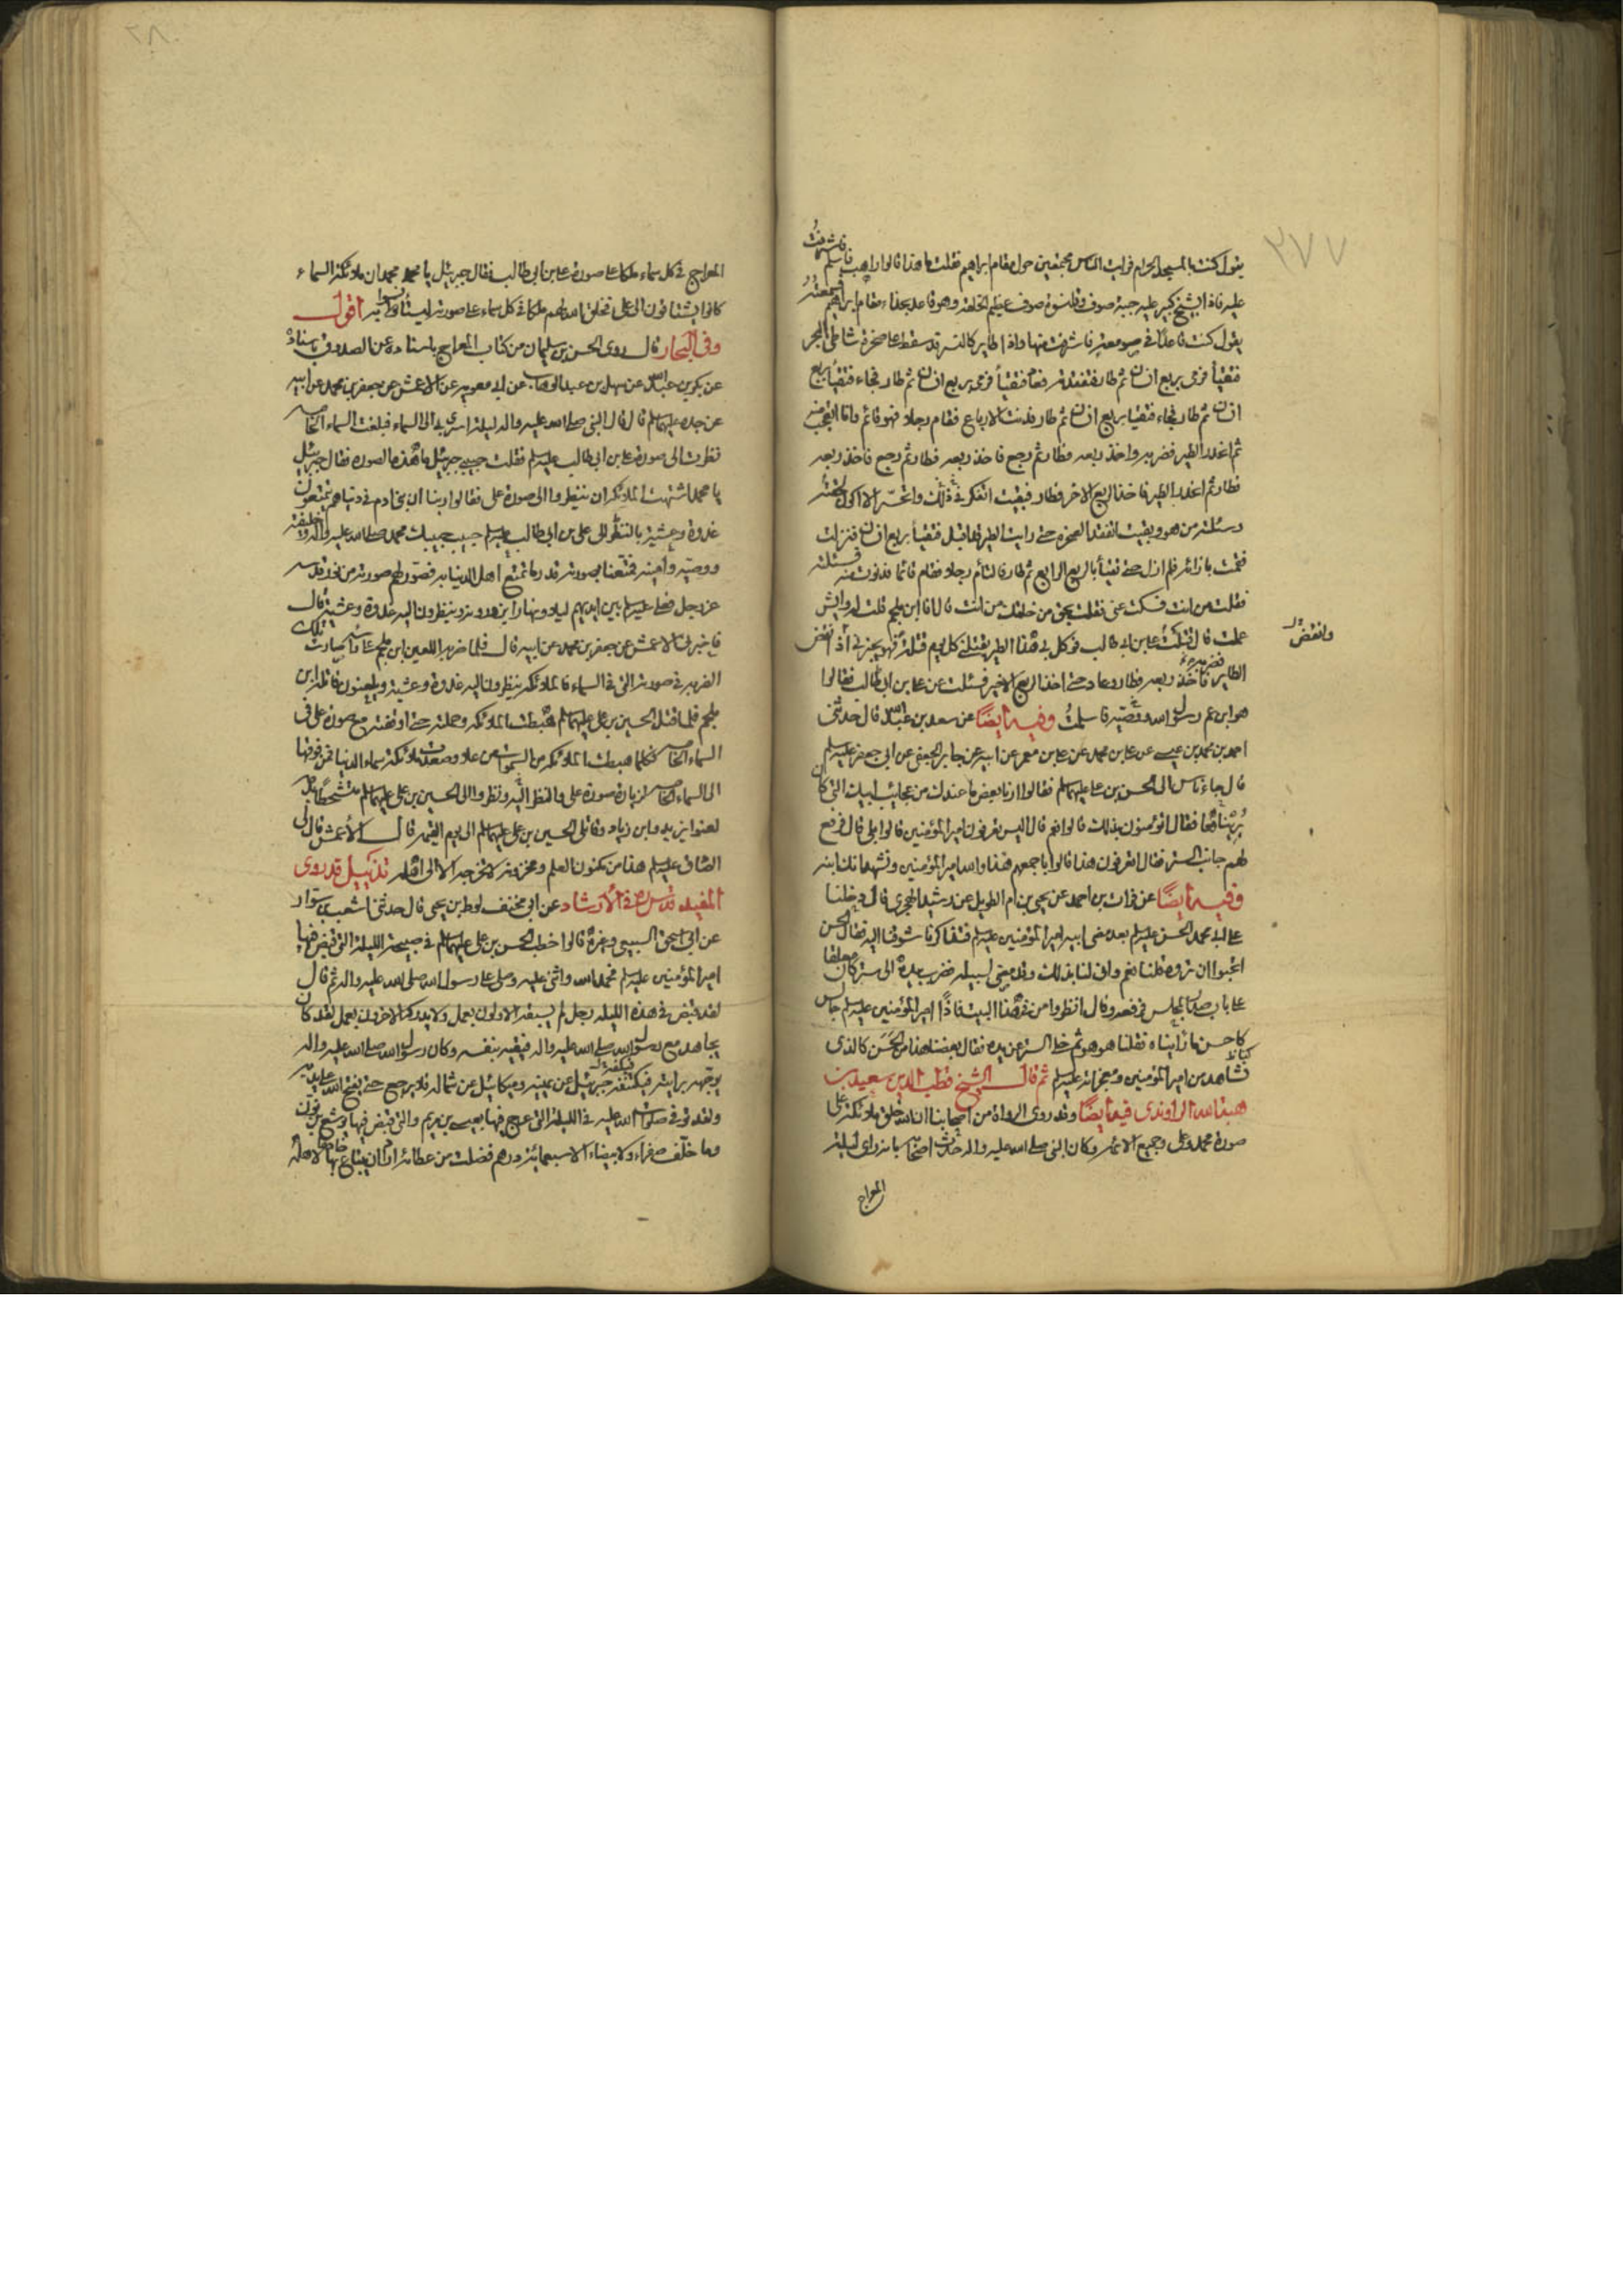 ٢٧٧
يقول كنت بالمسجد الحرام فرايت الناس مجتمعين حول مقام ابراهيم فقلت ما هذا قالوا راهب اسلم فاشرفت
عليه فاذا بشيخ كبير عليه جبة صوف وقلنسوة صوف عظيم الخلقة وهو قاعد بحذاء مقام ابراهيم فسمعته
يقول كنت قاعدًا في صومعتي فاشرفت منها واذا طاير كالنسر قد سقط على صخرة شاطئ البحر
فتقيأ فرمى بربع انسان ثم طار فتفقدته فعاد فتقيأ فرمى بربع انسان ثم طار فجاء فتقيأ بربع
انسان ثم طار فجاء فتقيا بربع انسان ثم طار فدنت الارباع فقام رجلا فهو قائم وانا اتعجب منه
ثم انحدر الطير فضربه واخذ ربعه فطار ثم رجع فاخذ ربعه فطار ثم رجع فاخذ ربعه
فطار ثم انحدر الطير فاخذ الربع الاخر فطار فبقيت اتفكر في ذلك واتحسر الا اكون لحقته
وسئلته من هو وبقيت اتفقد الصخرة حتى رايت الطير قد اقبل فتقيأ بربع انسان فنزلت
فقمت بازائه فلم ازل حتى تقيأ بالربع الرابع ثم طار فالتأم رجلا فقام قائما فدنوت منه فسئلته
فقلت من انت فسكت عني فقلت بحق من خلقك من انت قال انا ابن ملجم قلت له وايش
عملت قال قتلت علي بن ابي طالب فوكل بي هذا الطير يقتلني كل يوم قتلة فهو يخبرني اذ انقض
وانقض
الطاير فضربه فاخذ ربعه فطار وعاد حتى اخذ الربع الاخير فسئلت عن علي بن ابي طالب فقالوا
هو ابن عم رسول الله ووصيه فاسلمت وفيه ايضًا عن سعد بن عبدالله قال حدثني
احمد بن محمد بن عيسى عن علي بن محمد عن علي بن معمر عن ابيه عن جابر الجعفي عن ابي جعفر عليه السلم
قال جاء ناس الى الحسن بن علي عليهما السلم فقالوا ارنا بعض ما عندك من عجائب ابيك التي كان
يريناها فقال اتؤمنون بذلك قالوا نعم قال اليس تعرفون امير المؤمنين قالوا بلى قال فرفع
لهم جانب الستر فقال اتعرفون هذا قالوا باجمعهم هذا والله امير المؤمنين ونشهد انك ابنه
وفيه ايضًا عن فرات بن احمد عن يحيى بن ام الطويل عن رشيد الهجري قال دخلنا
على ابي محمد الحسن عليه السلم بعد مضي ابيه امير المؤمنين عليه السلم فتذاكرنا شوقنا اليه فقال الحسن
اتحبوا ان تروه قلنا نعم وانى لنا بذلك وقد مضى لسبيله فضرب بيده الى ستر كان معلقا
على باب في صدر المجلس فرفعه وقال انظروا من في هذا البيت فاذًا امير المؤمنين عليه السلم جالس
كاحسن ما رأيناه فقلنا هو هو ثم خلا الستر عن يده فقال بعضنا هذا من الحسن كالذي
كنا نشاهد من امير المؤمنين ومعجزاته عليه السلم ثم قال الشيخ قطب الدين سعيد بن
هبة الله الراوندي فيه ايضًا وقد روى الرواة من اصحابنا ان الله خلق ملائكة على
صورة محمد وعلي وجميع الائمة وكان النبي صلى الله عليه واله حدث اصحابه بانه راى ليلة
المعراج
المعراج في كل سماء ملكا على صورة علي بن ابي طالب فقال جبرئيل يا محمد ان ملائكة السماء
كانوا يشتاقون الى علي فخلق الله لهم ملكا في كل سماء على صورته ليستأنسوا به اقول
وفي البحار قال روى الحسن بن سليمان من كتاب المعراج باسناده عن الصدوق باسناده
عن بكر بن عبدالله عن سهل بن عبد الوهاب عن ابي معوية عن الاعمش عن جعفر بن محمد عن ابيه
عن جده عليهم السلم قال قال النبي صلى الله عليه واله ليلة اسري بي الى السماء فبلغت السماء الخامسة
نظرت الى صورة علي بن ابي طالب عليه السلم فقلت حبيبي جبرئيل ما هذه الصورة فقال جبرئيل
يا محمد اشتهت الملائكة ان ينظروا الى صورة علي فقالوا ربنا ان بني ادم في دنياهم يتمتعون
غدوة وعشية بالنظر الى علي بن ابي طالب عليه السلم حبيب حبيبك محمد صلى الله عليه واله وخليفته
ووصيه وامينه فمتعنا بصورته قدر ما تمتع اهل الدنيا به فصور لهم صورته من نور قدسه
عز وجل فعلي عليه السلم بين ايديهم ليلا ونهارا يزورونه وينظرون اليه غدوة وعشية قال
فاخبرني الاعمش عن جعفر بن محمد عن ابيه قال فلما ضربه اللعين ابن ملجم على راسه صارت تلك
الضربة في صورته التي في السماء فالملائكة ينظرون اليه غدوة وعشية ويلعنون قاتله ابن
ملجم فلما قتل الحسين بن علي عليهما السلم هبطت الملائكة وحملته حتى اوقفته مع صورة علي في
السماء الخامسة فكلما هبطت الملائكة من السموات من علا وصعدت ملائكة سماء الدنيا فمن فوقها
الى السماء الخامسة لزيارة صورة علي والنظر اليه ونظروا الى الحسين بن علي عليهما السلم متشحطا بدمه
لعنوا يزيد وابن زياد وقاتلي الحسين بن علي عليهما السلم الى يوم القيمة قال الاعمش قال لي
الصادق عليه السلم هذا من مكنون العلم ومخزونه لا تخرجه الا الى اهله تذييل قد روى
المفيد قدس سره في الارشاد عن ابي مخنف لوط بن يحيى قال حدثني اشعب بن سوار
عن ابي اسحق السبيعي وغيره قالوا خطب الحسن بن علي عليهما السلم في صبيحة الليلة التي قبض فيها
امير المؤمنين عليه السلم فحمد الله واثنى عليه وصلى على رسول الله صلى الله عليه واله ثم قال
لقد قبض في هذه الليلة رجل لم يسبقه الاولون بعمل ولا يدركه الاخرون بعمل لقد كان
يجاهد مع رسول الله صلى الله عليه واله فيقيه بنفسه وكان رسول الله صلى الله عليه واله
يوجهه برايته فيكنفه جبرئيل عن يمينه وميكائيل عن شماله فلا يرجع حتى يفتح الله على يديه
ولقد توفي صلوات الله عليه في الليلة التي عرج فيها بعيسى بن مريم والتي قبض فيها يوشع بن نون
وما خلف صفراء ولا بيضاء الا سبعمائة درهم فضلت من عطائه اراد ان يبتاع بها خادما لاهله